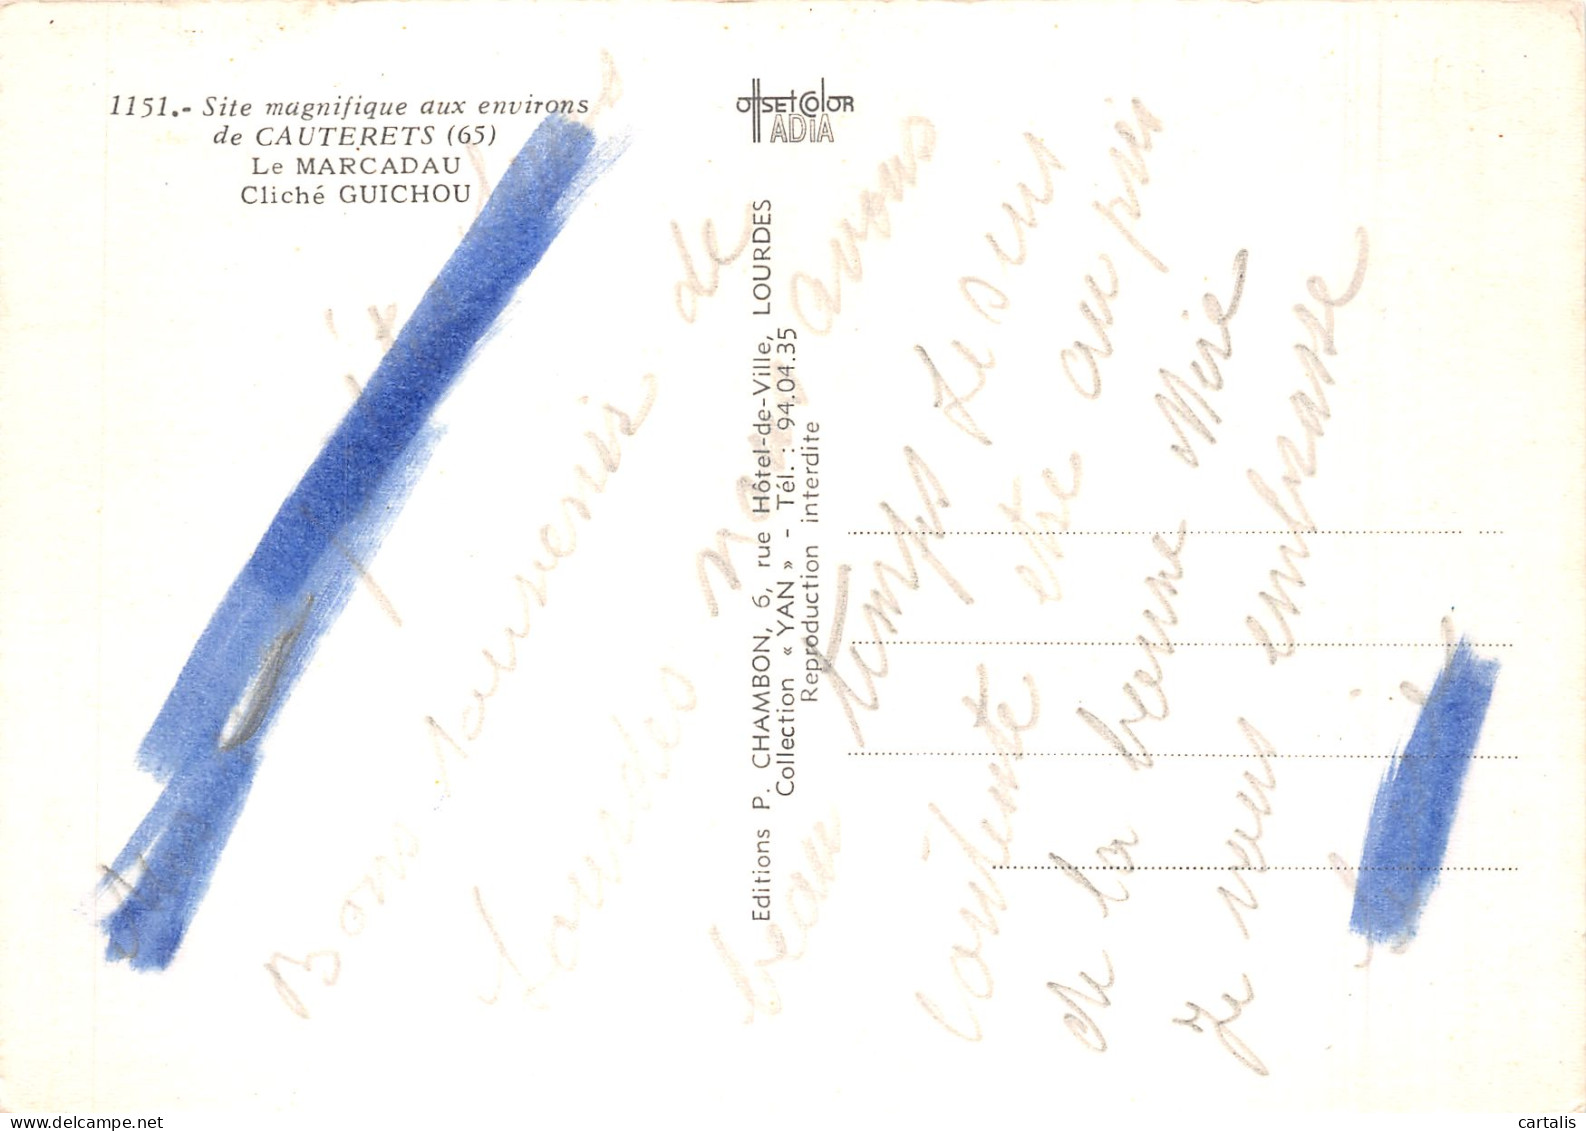 1151.- Site magnifique aux environs
de CAUTERETS (65)
Le MARCADAU
Cliché GUICHOU
OffsetColor
ADIA
Editions P. CHAMBON, 6, rue Hôtel-de-Ville, LOURDES
Collection « YAN » - Tél. : 94.04.35
Reproduction interdite
Bons souvenirs de
Lourdes nous avons
beau temps Je suis
contente etre au pres
de la bonne Mere
Je vous embrasse
cartalis